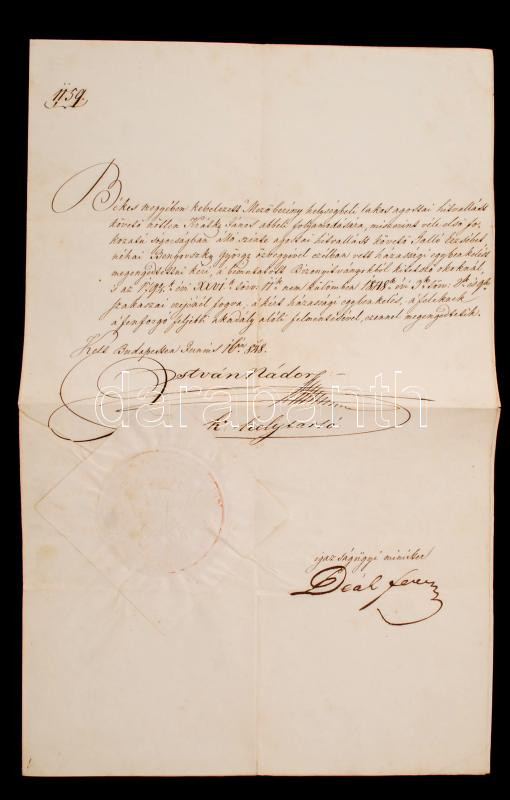 1159.
Békes megyében kebelezett Mező berény helységbeli lakos ágostai hitvallást
követő nőtlen Králik János abbeli folyamodására, miszerint véle első fo-
kozatú sógorságban álló szinte ágostai hitvallást követő Galló Erzsébet
néhai Benyovszky György özvegyével czélban vett házassági egybekelését
megengedtetni kéri, a bemutatott Bizonyitványokból kitetsző okoknál,
s az 1791. évi XXVI. törv. nem különben 1848. évi 3. törv.
szakaszai erejénél fogva, a kért házassági egybekelés, a feleknek
a fenforgó féljebbi akadály alóli felmentésével, ezennel megengedtetik.
Kelt Budapesten Junius 16án 848.
István Nádor
kir helytartó
igazságügyi minister
Deák Ferencz
darabanth